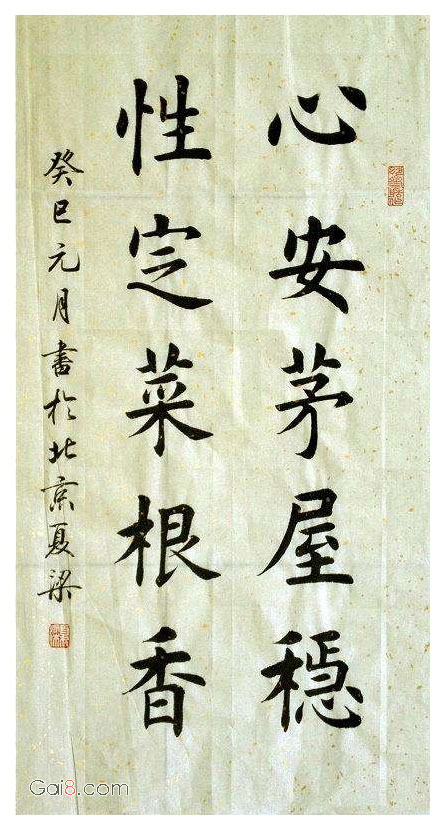 心安茅屋穩
性定菜根香
癸巳元月書於北京夏梁
Gai8.com